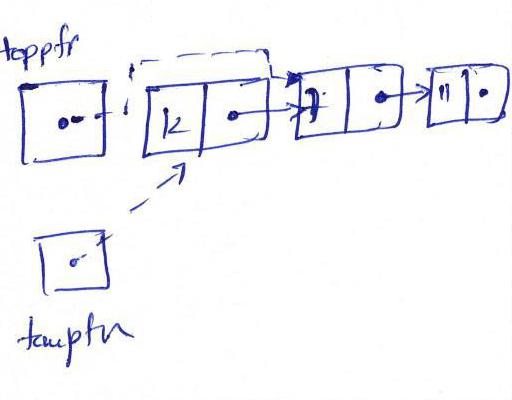 topptr
12
7
11
tempptr